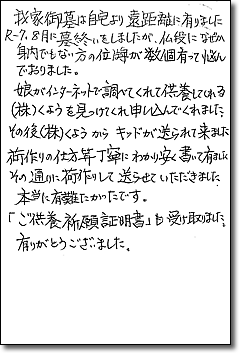 我家御墓は自宅より遠距離に有りました
R-7.8月に墓終いをしましたが、仏段になぜか
身内でもない方の位牌が数個有って悩ん
でおりました。
娘がインターネットで調べてくれて供養してくれる
(株)くようを見つけてくれ申し込んでくれました
その後(株)くようから キッドが送られて来ました
荷作りの仕方等丁寧にわかり安く書いて有ました
その通りに荷作りして 送らせていただきました
本当に有難たかったです。
「ご供養祈願証明書」も受け取りました。
有りがとうございました。